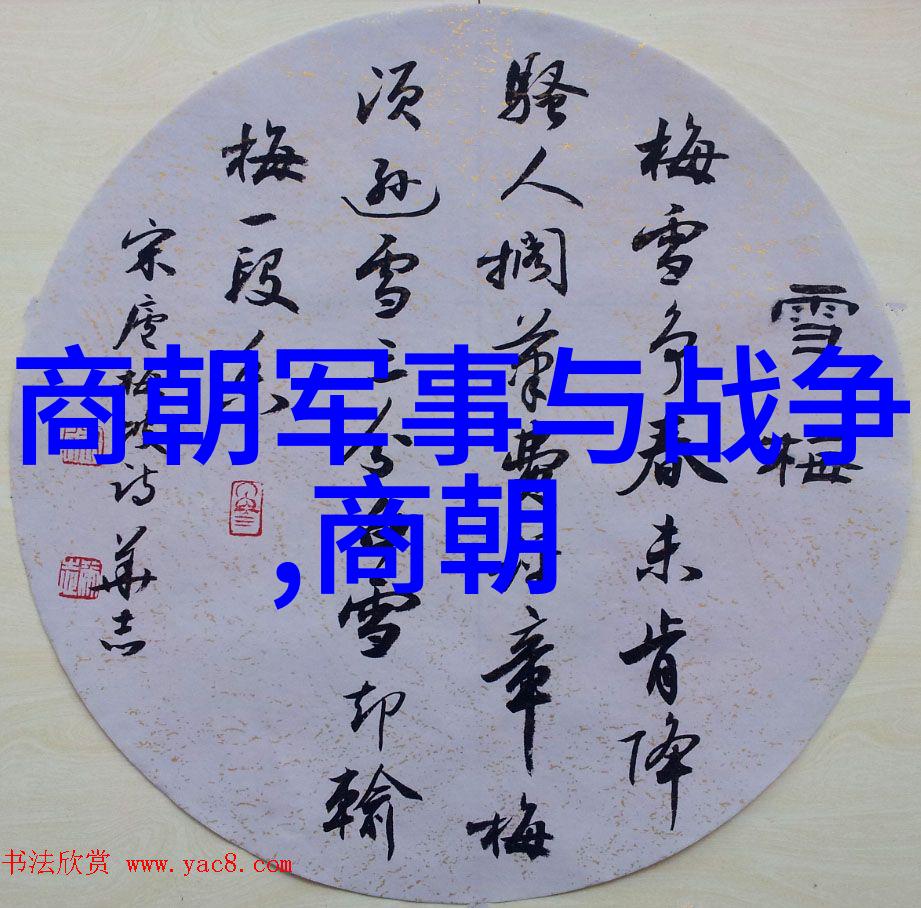 商朝军事与战争
,商朝
雪梅
梅雪争春未肯降
騷人擱筆費评章梅
須遜雪三分白雪却輸
梅一段香
宋盧梅坡诗華志
书法欣赏 www.yac8.com